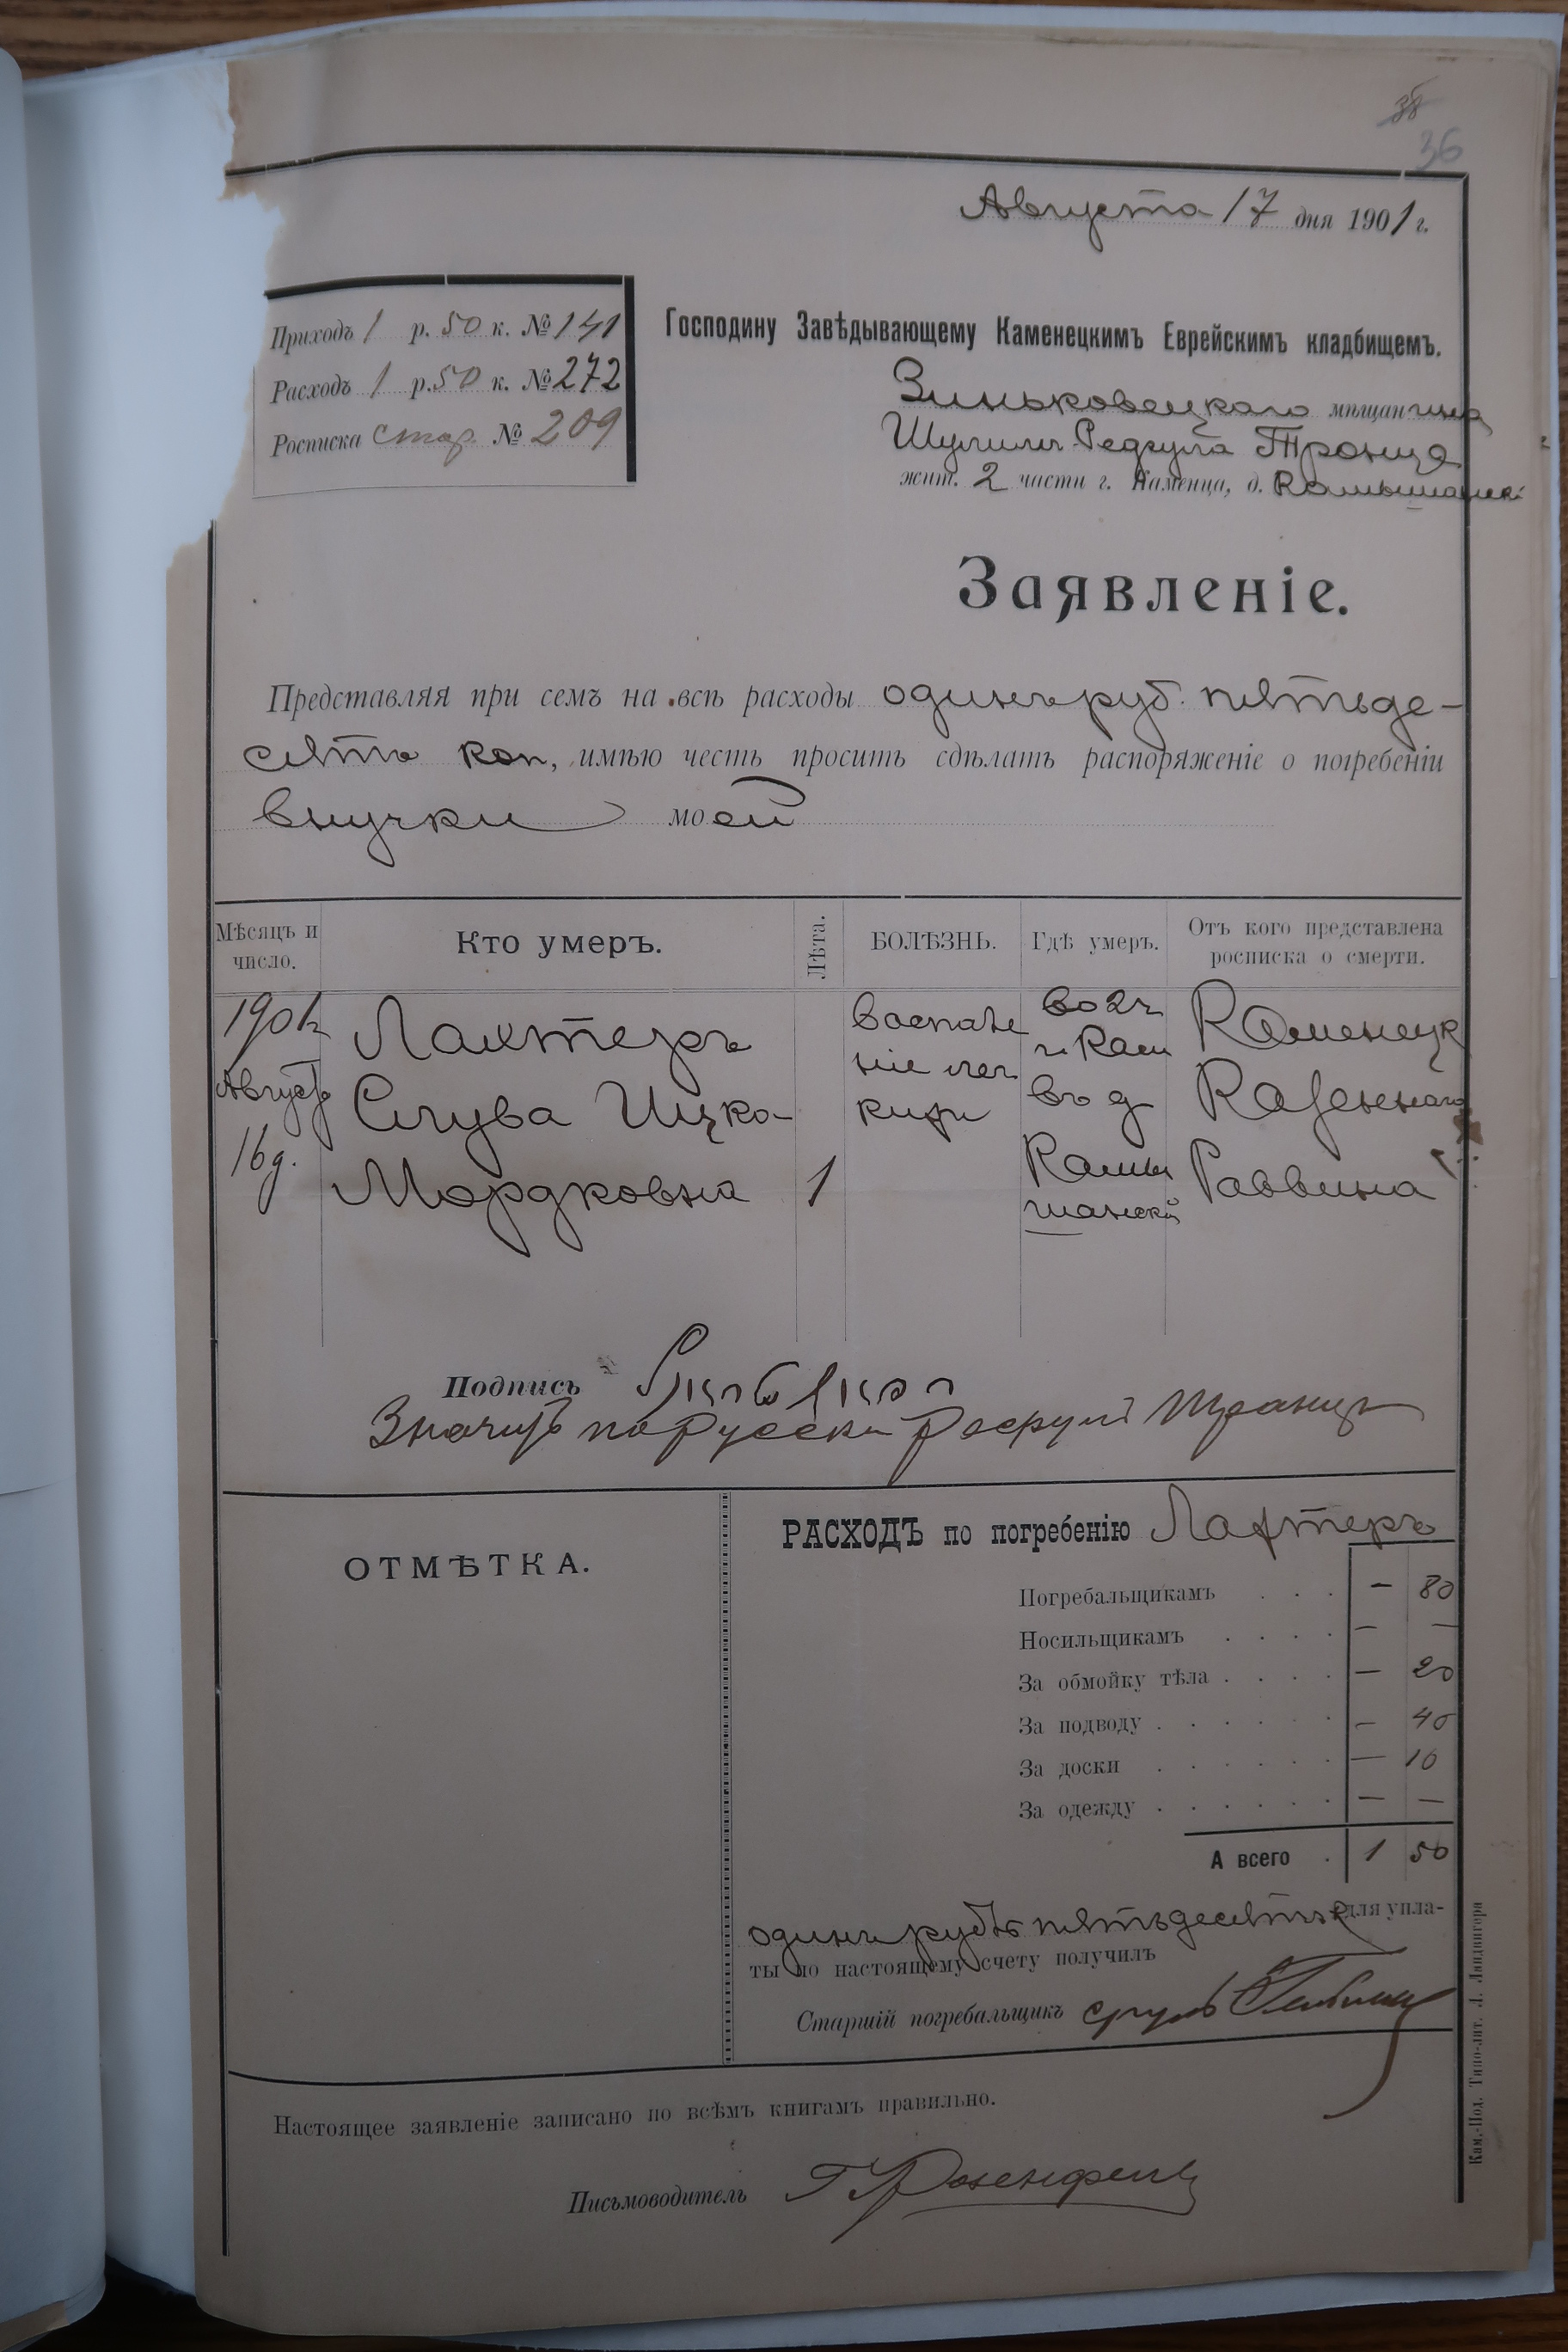 38
36
Августа 17 дня 1901 г.
Приходъ 1 р. 50 к. № 141
Расходъ 1 р. 50 к. № 272
Росписка стар. № 209
Господину Завѣдывающему Каменецкимъ Еврейскимъ кладбищемъ.
Зиньковецкаго мѣщанина
жит. 2 части г. Каменца, д.
Заявленіе.
Представляя при семъ на всѣ расходы одинъ руб. пятьде-
сятъ коп, имѣю честь просить сдѣлать распоряженіе о погребеніи
внучки моей
Мѣсяцъ и число.
Кто умеръ.
Лѣта.
БОЛѢЗНЬ.
Гдѣ умеръ.
Отъ кого представлена росписка о смерти.
1901 г
Августа
16 д.
Лахтеръ
Слува Ицко-
Мордковна
1
воспале
ніе лег
кихъ
во 2 ч
г. Кам
въ д
Каменецк
Казеннаго
Раввина
Подпись
Значитъ по Русски
ОТМѢТКА.
РАСХОДЪ по погребенію Лахтеръ
Погребальщикамъ . . . — 80
Носильщикамъ . . . . — —
За обмойку тѣла . . . . — 20
За подводу . . . . . . — 40
За доски . . . . . . — 10
За одежду . . . . . . — —
А всего . 1 50
одинъ рубль пятьдесятъ к для упла-
ты по настоящему счету получилъ
Старшій погребальщикъ
Настоящее заявленіе записано по всѣмъ книгамъ правильно.
Письмоводитель Г Розенфельд
Кам.-Под. Типо-лит. Л. Ландвигера